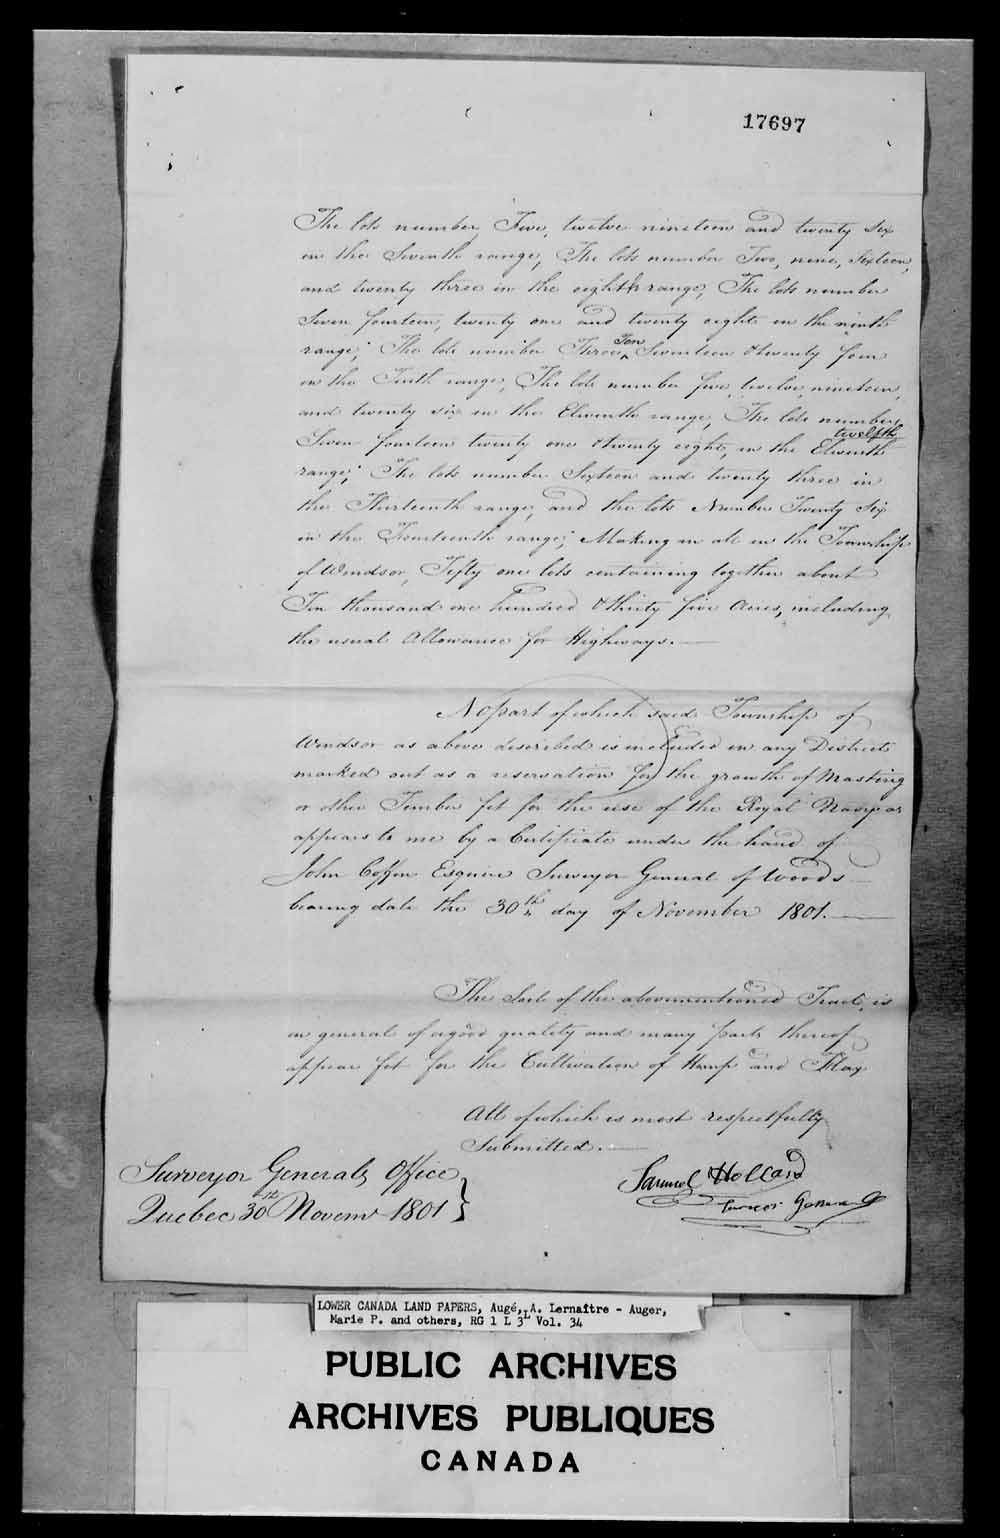 17697
The lots number Five, twelve nineteen and twenty six
in the Seventh range, The lots number Two, nine, Sixteen,
and twenty three in the eighth range, The lots number
Seven fourteen, twenty one and twenty eight in the ninth
range; The lots number Three Ten Seventeen & twenty four
in the Tenth range, The lots number five, twelve, nineteen,
and twenty six in the Eleventh range, The lots number
twelfth
Seven fourteen twenty one & twenty eight, in the Eleventh
range; The lots number Sixteen and twenty three in
the Thirteenth range, and the lots Number Twenty Six
in the Fourteenth range; Making in all in the Township
of Windsor, Fifty one lots containing together about
Ten thousand one hundred & thirty five Acres, including
the usual Allowance for Highways.
No part of which said Township of
Windsor as above described is included in any District
marked out as a reservation for the growth of Masting
or other Timber fit for the use of the Royal Navy as
appears to me by a Certificate under the hand of
John Coffin Esquire Surveyor General of Woods
bearing date the 30th day of November 1801.
The Soil of the abovementioned Tract, is
in general of a good quality and many parts thereof
appear fit for the Cultivation of Hemp and Flax
All of which is most respectfully
Submitted.
Surveyor Generals Office
Quebec 30th Novemr 1801
Samuel Holland
Surveyor General
LOWER CANADA LAND PAPERS, Augé, A. Lernaître - Auger,
Marie P. and others, RG 1 L 3L Vol. 34
PUBLIC ARCHIVES
ARCHIVES PUBLIQUES
CANADA